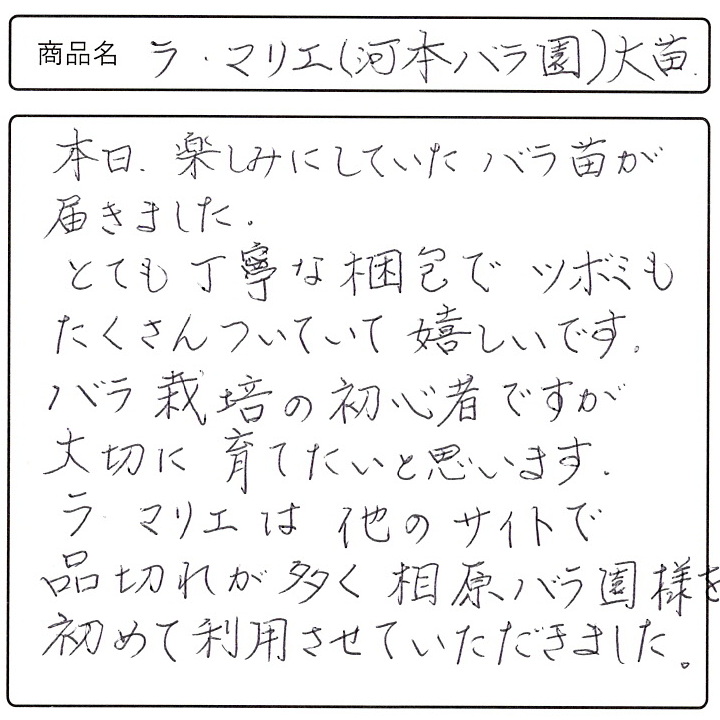 商品名 ラ・マリエ(河本バラ園)大苗.
本日、楽しみにしていた バラ苗が
届きました.
とても丁寧な梱包で ツボミも
たくさんついていて 嬉しいです。
バラ栽培の初心者ですが
大切に 育てたいと思います.
ラ・マリエは 他のサイトで
品切れが多く 相原バラ園様を
初めて利用させていただきました。